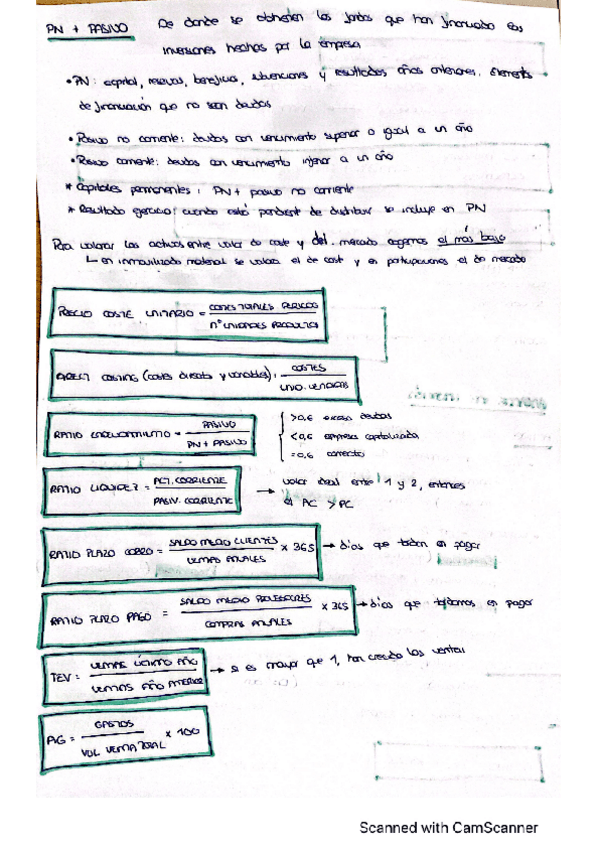 PN + PASIVO De donde se obtienen los fondos que han financiado las
inversiones hechas por la empresa
• PN: capital, reservas, beneficios, subvenciones y resultados años anteriores. Elementos
de financiación que no sean deudas
• Pasivo no corriente: deudas con vencimiento superior o igual a un año
• Pasivo corriente: deudas con vencimiento inferior a un año
* Capitales permanentes: PN + pasivo no corriente
* Resultado ejercicio: cuando está pendiente de distribuir se incluye en PN
Para valorar los activos entre valor de coste y del mercado cogemos el más bajo
↳ en inmovilizado material se valora el de coste y en participaciones el de mercado
PRECIO COSTE UNITARIO = COSTES TOTALES PERIODO
Nº UNIDADES PRODUCTOS
DIRECT COSTING (costes directos y variables): COSTES
UNID. VENDIDAS
RATIO ENDEUDAMIENTO = PASIVO
PN + PASIVO
>0,6 exceso deudas
<0,6 empresa capitalizada
=0,6 correcto
RATIO LIQUIDEZ = ACT. CORRIENTE
PASIV. CORRIENTE
→ valor ideal entre 1 y 2, entonces
AC > PC
RATIO PLAZO COBRO = SALDO MEDIO CLIENTES
VENTAS ANUALES
x 365 → días que tardan en pagar
RATIO PLAZO PAGO = SALDO MEDIO PROVEEDORES
COMPRAS ANUALES
x 365 → días que tardamos en pagar
TEV = VENTAS ÚLTIMO AÑO
VENTAS AÑO ANTERIOR
→ si es mayor que 1, han crecido las ventas
AG = GASTOS
VOL VENTA TOTAL
x 100
Scanned with CamScanner